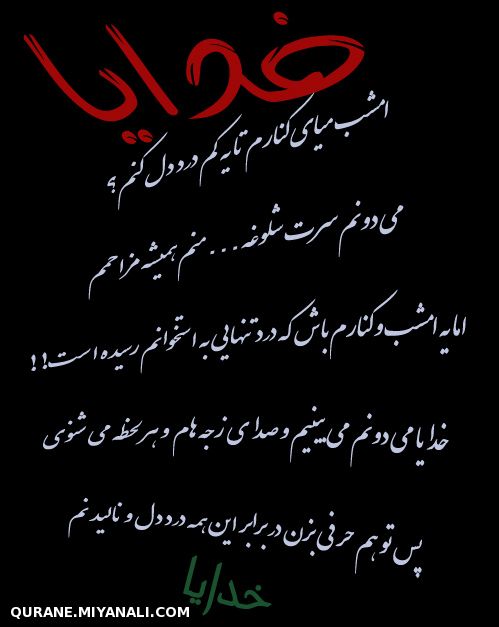 خدایا
امشب میای کنارم تا یه کم درد دل کنم؟
می دونم سرت شلوغه... منم همیشه مزاحمم
اما یه امشب و کنارم باش که درد تنهایی به استخوانم رسیده است!!
خدایا می دونم می بینیم و صدای زجه هام و هر لحظه می شنوی
پس تو هم حرفی بزن در برابر این همه درد دل و نالیدنم
خدایا
QURANE.MIYANALI.COM